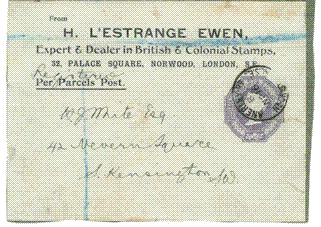 From
H. L'ESTRANGE EWEN,
Expert & Dealer in British & Colonial Stamps,
32, PALACE SQUARE, NORWOOD, LONDON, S.E.
Registered
Per Parcels Post.
H J White Esq
42 Nevern Square
S. Kensington SW